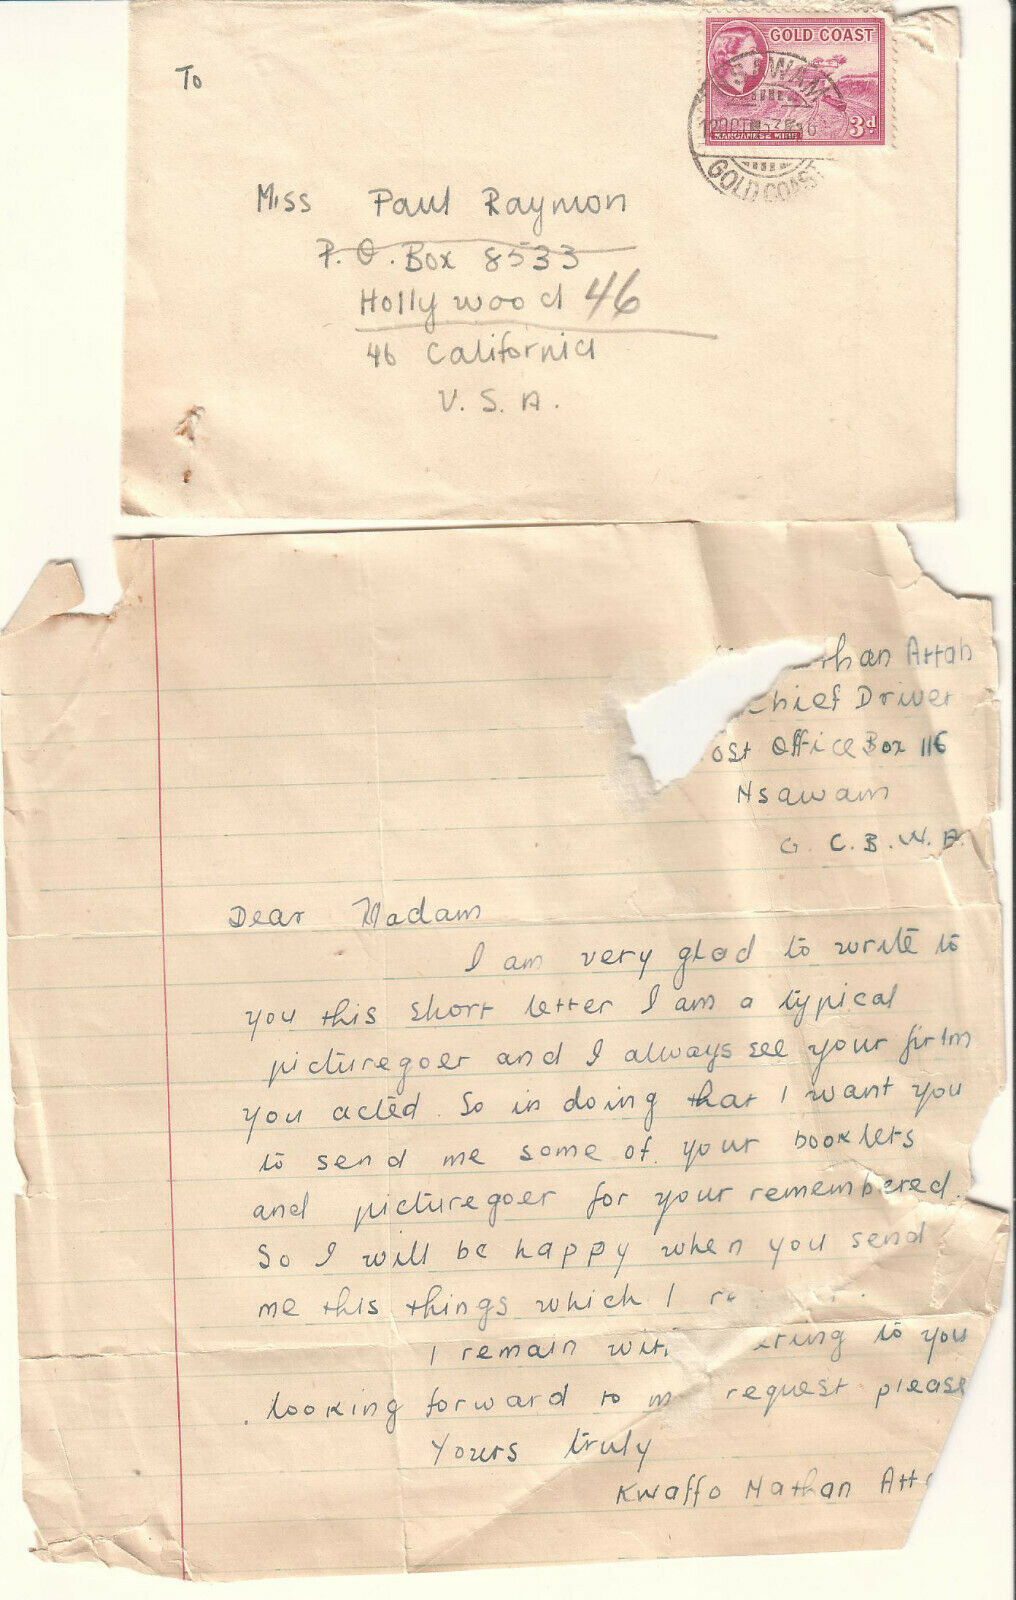 GOLD COAST
NSAWAM
12 OCT 53
GOLD COAST
MANGANESE MINE
3d
To
Miss Paul Raymon
P.O. Box 8533
Hollywood 46
46 California
U.S.A.
than Attah
Chief Driver
ost Office Box 116
Nsawam
G.C.B.W.A.
Dear Madam
I am very glad to write to
you this short letter I am a typical
picturegoer and I always see your firlm
you acted. So in doing that I want you
to send me some of your booklets
and picturegoer for your remembered.
So I will be happy when you send
me this things which I
I remain ering to you
looking forward to request please
Yours truly
Kwaffo Nathan Atta